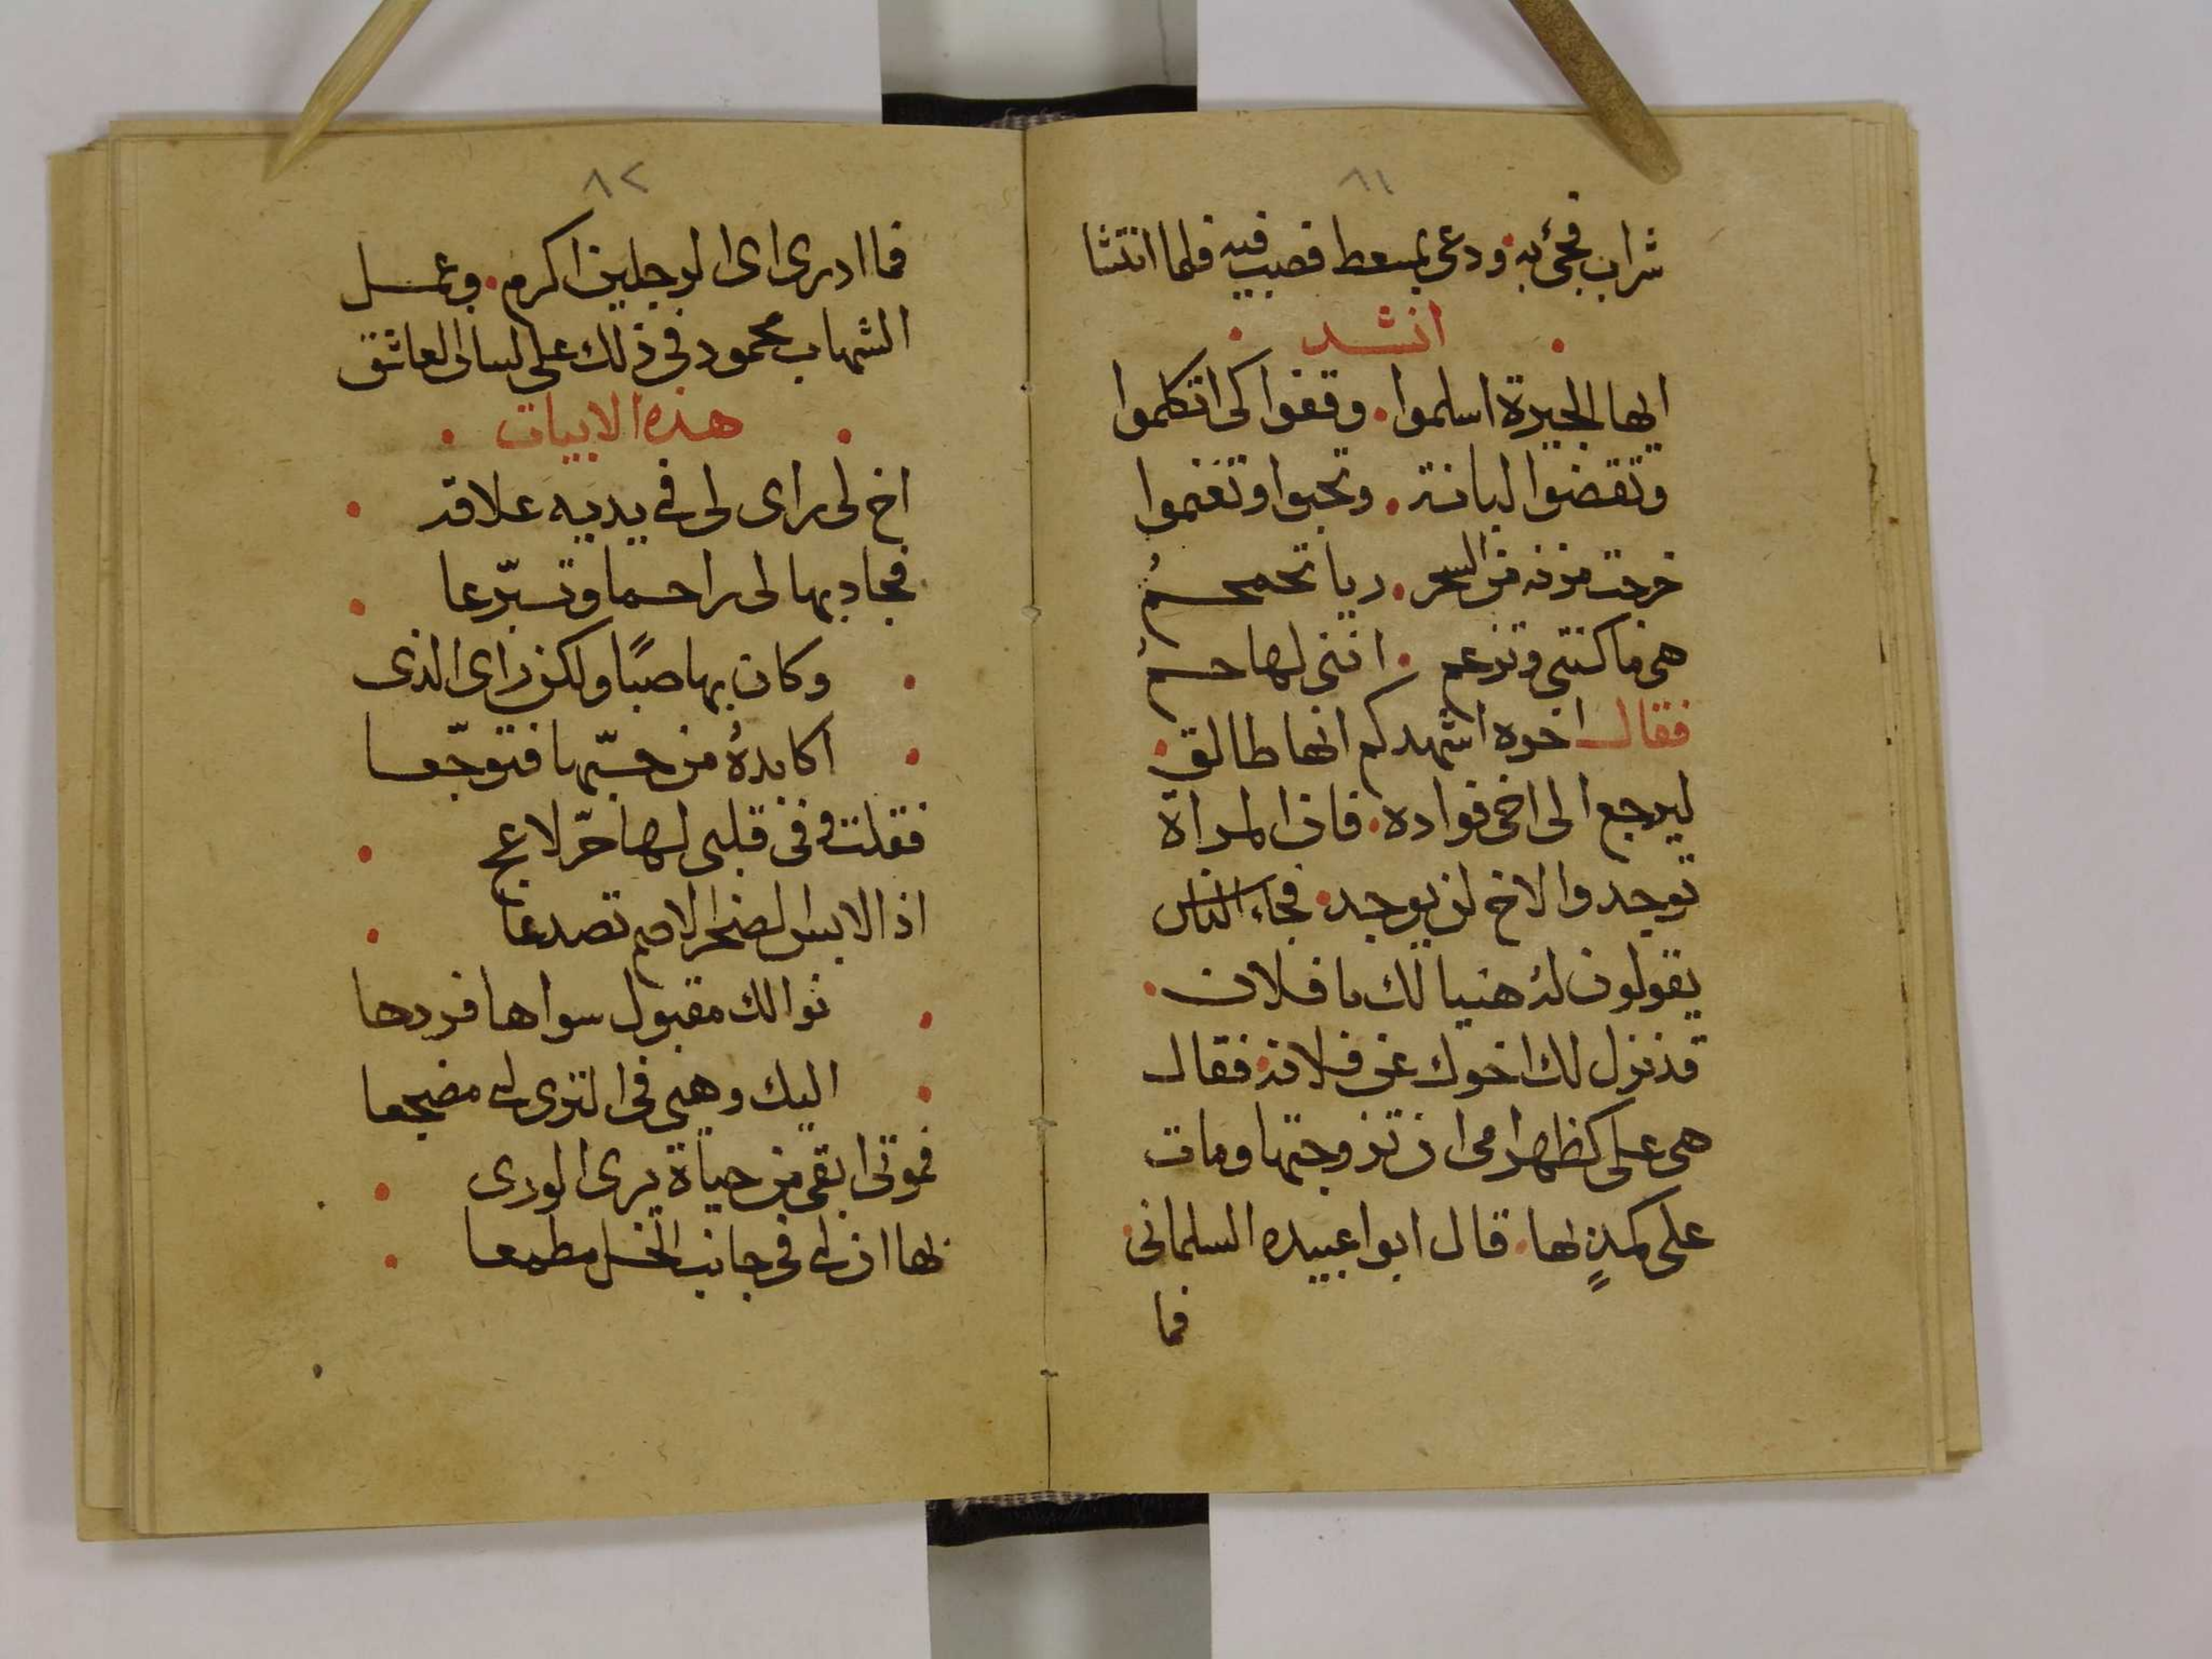 ٨١
شراب فجئ به ودعى بمسعط فصب فيه فلما انتشا
انشد
ايها الجيرة اسلموا وقفوا كى اتكلموا
وتقضوا لبانة وتحبوا وتغنموا
خرجت مزنه من البحر ريا تحمحم
هى ما كنتى وتزعم اننى لها حم
فقال اخوه اشهدكم انها طالق
ليرجع الى اخى فواده فان المراة
توجد والاخ لن يوجد فجاء الناس
يقولون له هنيا لك يا فلان
قد نزل لك اخوك عن فلانة فقال
هى على كظهر امى ان تزوجتها ومات
على كمدٍ لها قال ابوا عبيده السلمانى
فما
٨٢
فما ادرى اى الرجلين اكرم وعمل
الشهاب محمود فى ذلك على لسان العاشق
هذه الابيات
اخ لى راى لى فى يديه علاقة
فجاد بها لى راحما وتبرّعا
وكان بها صبًا ولكن راى الذى
اكابدهُ من حبّها فتوجّعا
فقلت وفى قلبى لها حرّ لاعج
اذا لابس الصخر الاصم تصدعا
نوالك مقبول سواها فردها
اليك وهبى فى الثرى لى مضجعا
فموتى ابقى من حياة يرى الورى
بها ان لى فى جانب الخل مطمعا